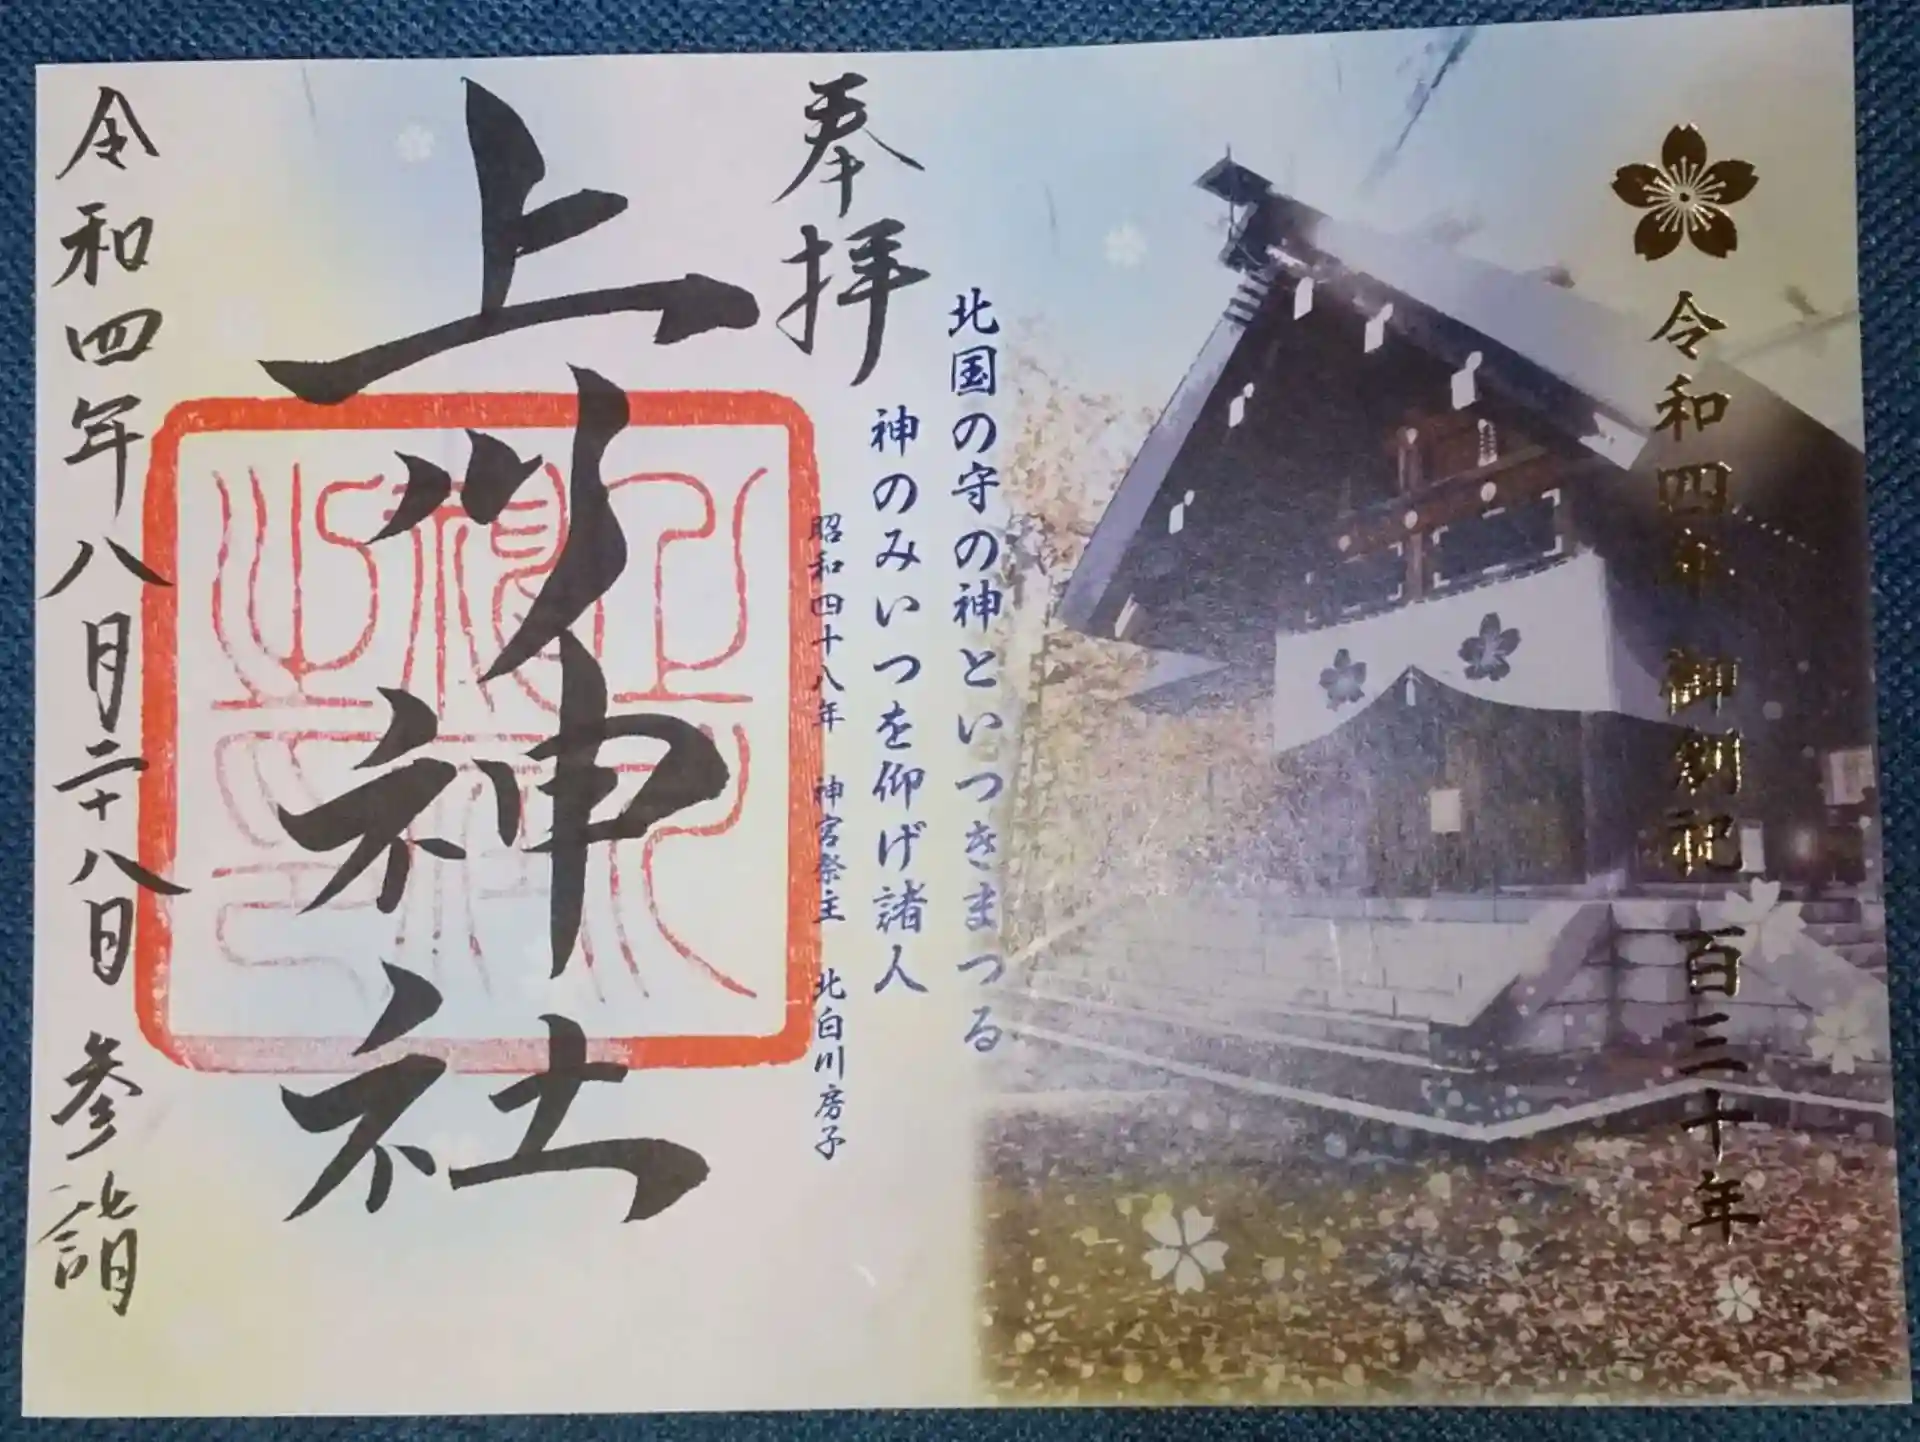 令和四年 御創祀 百三十年
北国の守の神といつきまつる
神のみいつを仰げ諸人
昭和四十八年 神宮祭主 北白川房子
奉拝
上川神社
令和四年八月二十八日 参詣